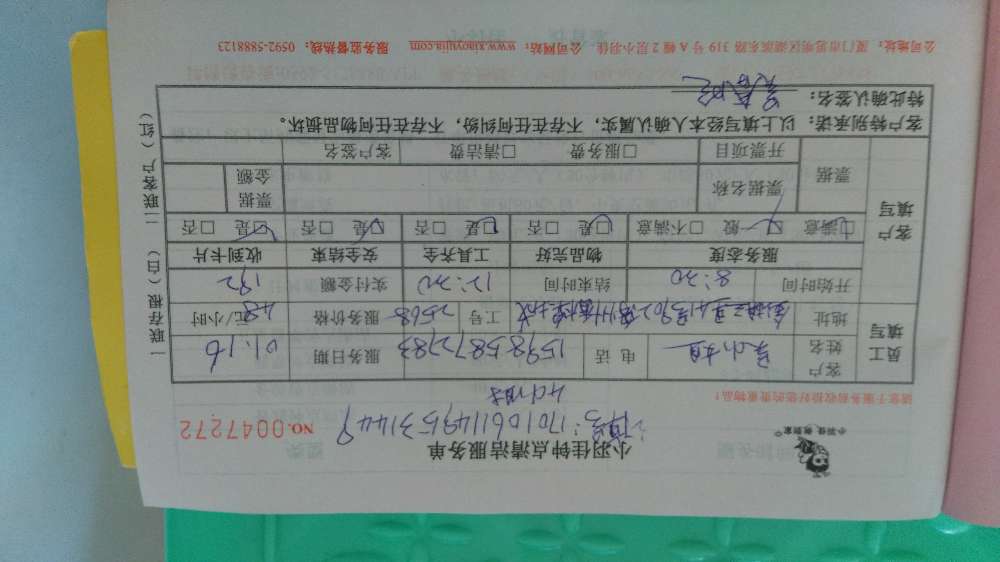 小羽佳钟点清洁服务单
NO.0047272
请您于服务前收拾好您的贵重物品!
4小时
员工填写
客户姓名 吴小姐 电话 服务日期 01.16
地址 工号 2568 服务价格 48元/小时
开始时间 8:30 结束时间 12:30 实付金额 192
客户填写
服务态度 物品完好 工具齐全 安全结束 收到卡片
□满意 □一般 □不满意 □是 □否 □是 □否 □是 □否 □是 □否
票据 票据名称 票据金额
开票项目 □服务费 □清洁费 客户签名
客户特别承诺:以上填写经本人确认属实,不存在任何纠纷,不存在任何物品损坏。
特此确认签名:
公司地址:厦门市思明区湖滨东路 319 号 A 幢 2 层小羽佳 公司网站:www.xiaoyujia.com 服务监督热线:0592-5888123
一联存根(白) 二联客户(红)